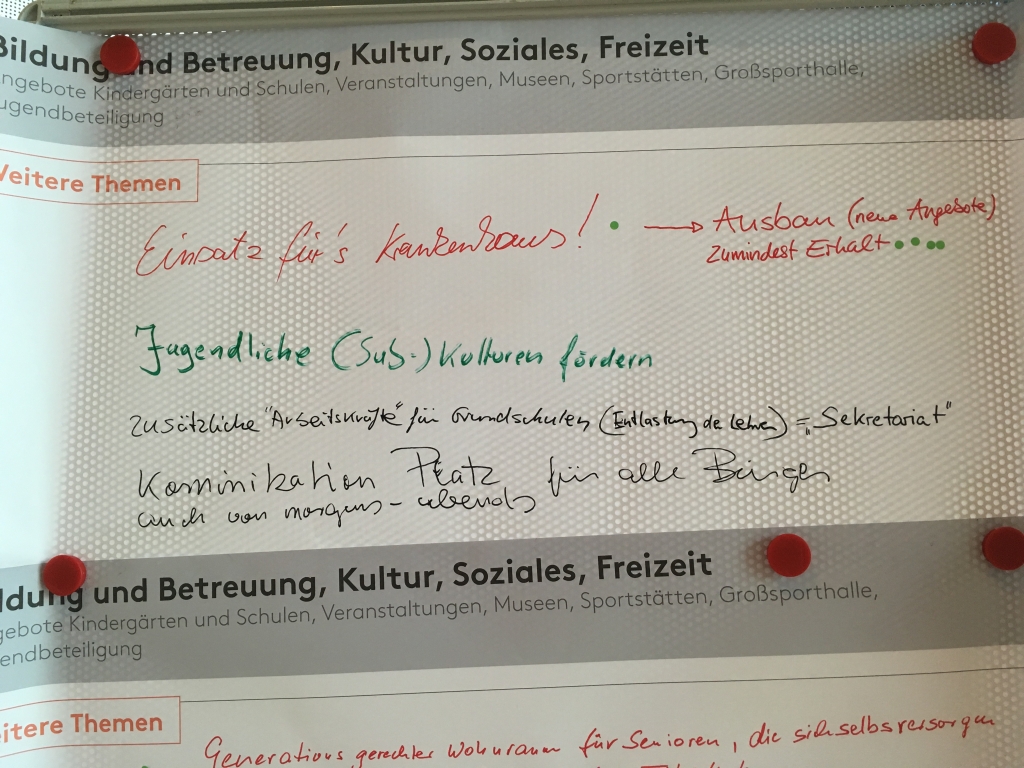 Bildung und Betreuung, Kultur, Soziales, Freizeit
ngebote Kindergärten und Schulen, Veranstaltungen, Museen, Sportstätten, Großsporthalle,
ugendbeteiligung
Weitere Themen
Einsatz für's Krankenhaus! → Ausbau (neue Angebote)
Zumindest Erhalt
Jugendliche (Sub-)Kulturen fördern
zusätzliche "Arbeitskräfte" für Grundschulen (Entlastung de Lehrer) = "Sekretariat"
Kominikation Platz für alle Bürger
auch von morgens - abends
ldung und Betreuung, Kultur, Soziales, Freizeit
gebote Kindergärten und Schulen, Veranstaltungen, Museen, Sportstätten, Großsporthalle,
endbeteiligung
eitere Themen
Generations gerechter Wohnraum für Senioren, die sich selbsversorgen